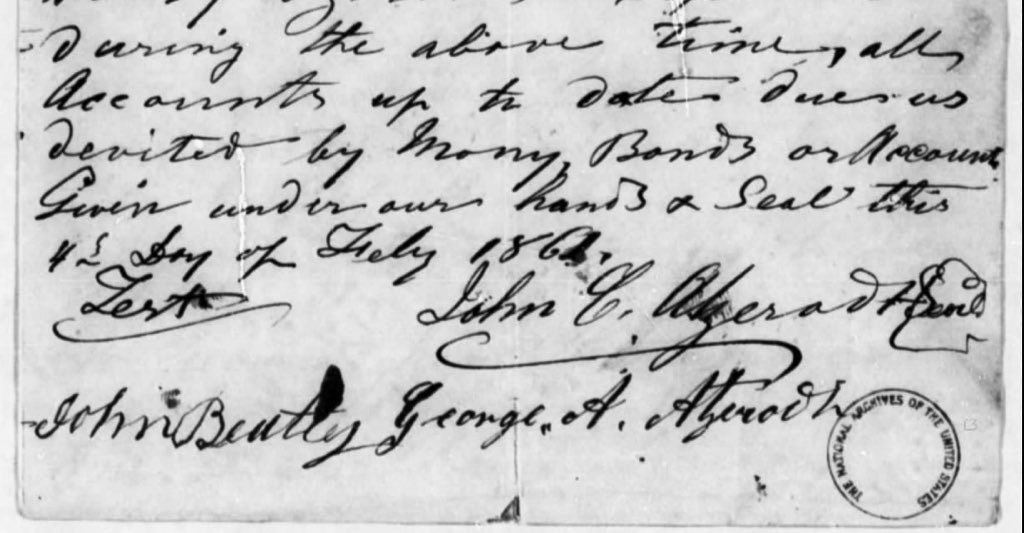 during the above time, all
Accounts up to date due us
devited by Mony, Bonds or Account
Given under our hands & Seal this
4th Day of Feby 1861.
Test John C. Atzerodt Seal
John Beatley George. A. Atzerodt
THE NATIONAL ARCHIVES OF THE UNITED STATES